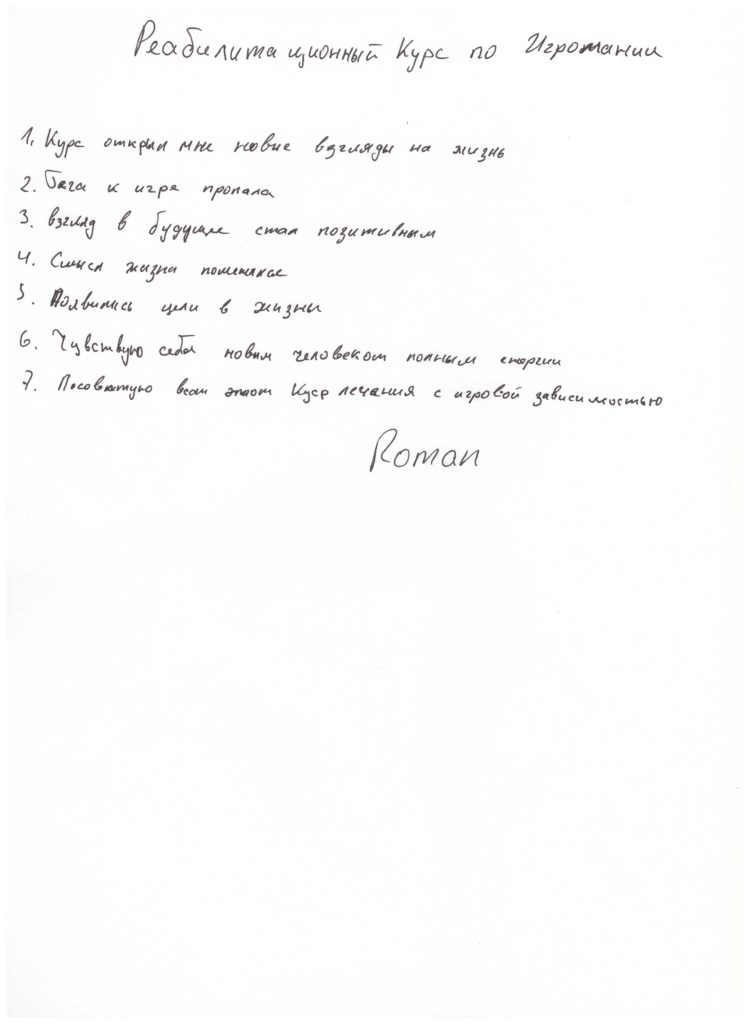 Реабилитационный Курс по Игромании
1. Курс открыл мне новые взгляды на жизнь
2. Тяга к игре пропала
3. взгляд в будущее стал позитивным
4. Смысл жизни поменялся
5. Появились цели в жизни
6. Чувствую себя новым человеком полным енергии
7. Посоветую всем этот Куср лечания с игровой зависимостью
Roman